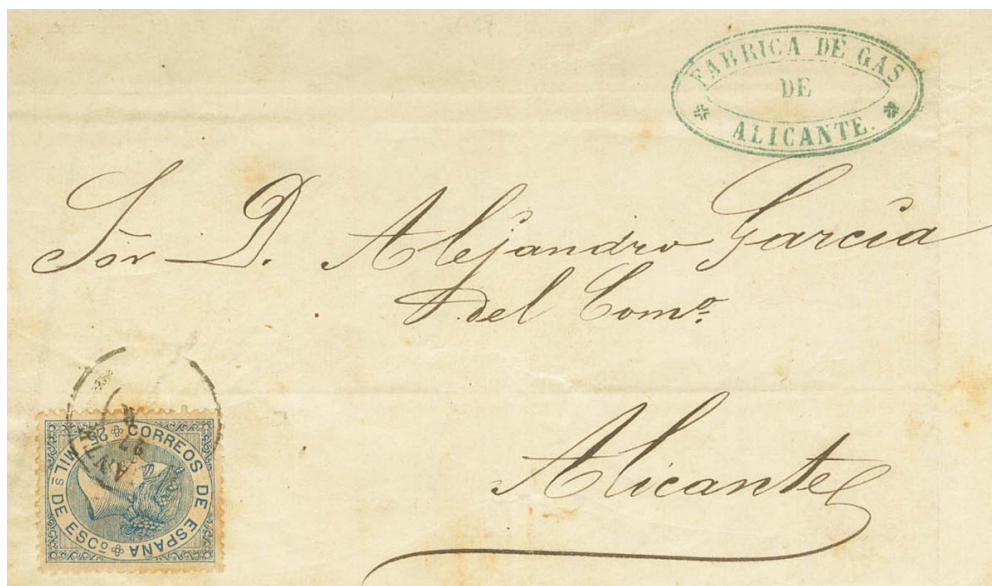 FABRICA DE GAS
DE
ALICANTE.
Sor D. Alejandro García
del Como.
Alicante
CORREOS DE ESPAÑA
25 MILS DE ESCO